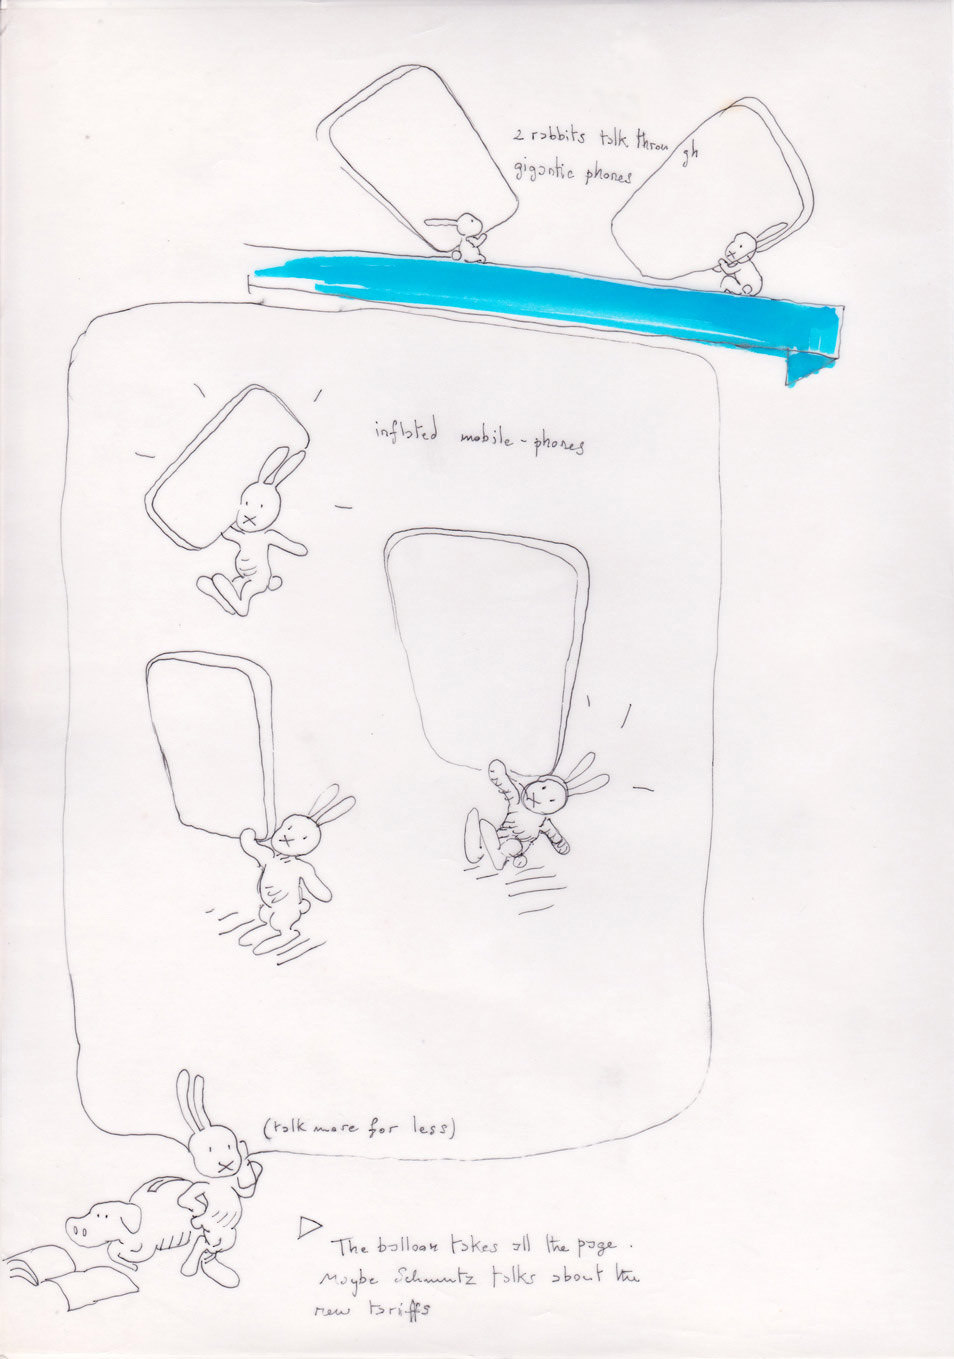 2 rabbits talk through
gigantic phones
inflated mobile-phones
(talk more for less)
The balloon takes all the page.
Maybe Schmutz talks about the
new tariffs